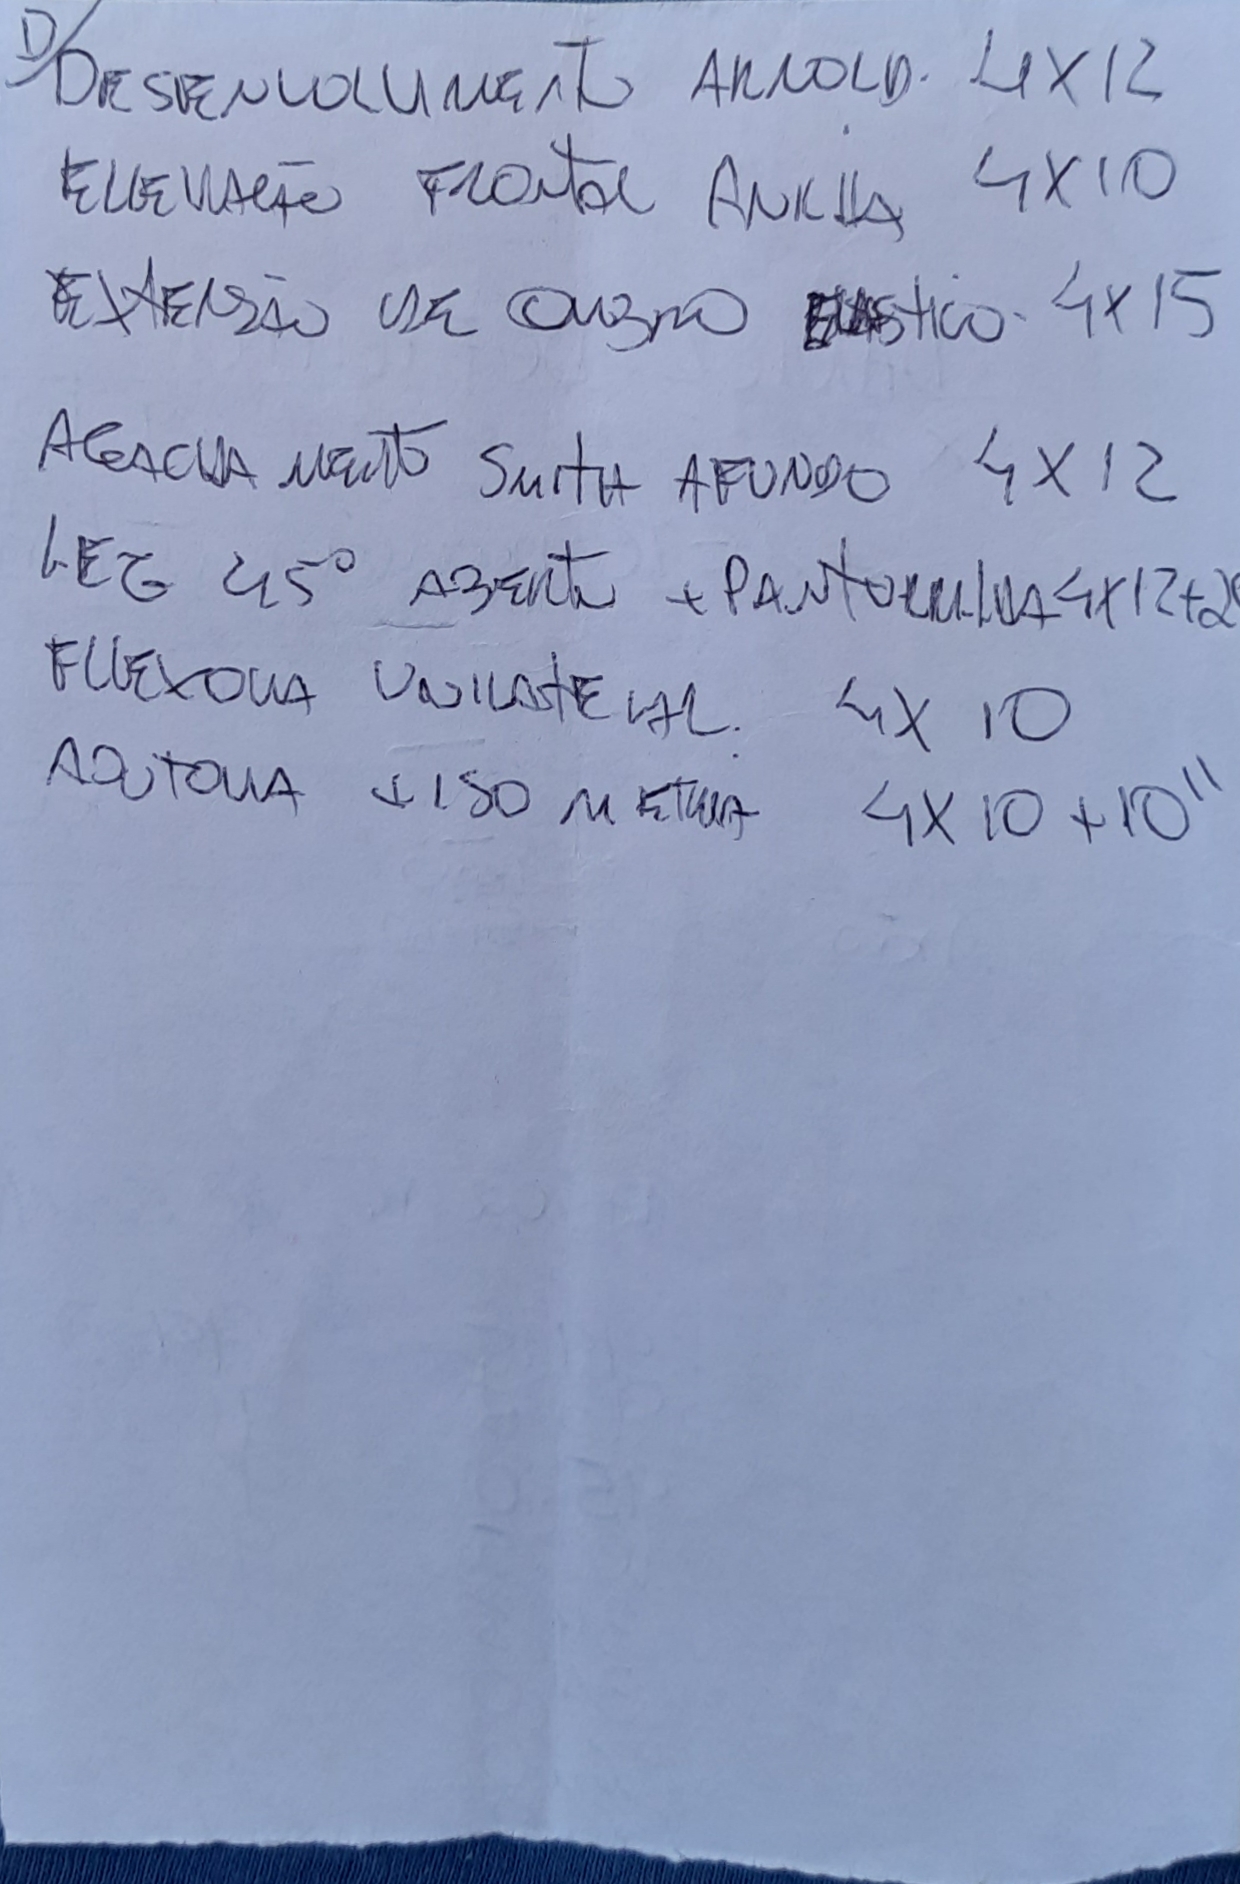 D/
DESENVOLVIMENTO ARNOLD. 4X12
ELEVAÇÃO FRONTAL ANILHA 4X10
EXTENSÃO DE OMBRO ELASTICO. 4X15
AGACHAMENTO SMITH AFUNDO 4X12
LEG 45° ABERTO + PANTURRILHA 4X12+20
FLEXORA UNILATERAL. 4X 10
ADUTORA + ISOMETRIA 4X10 +10"